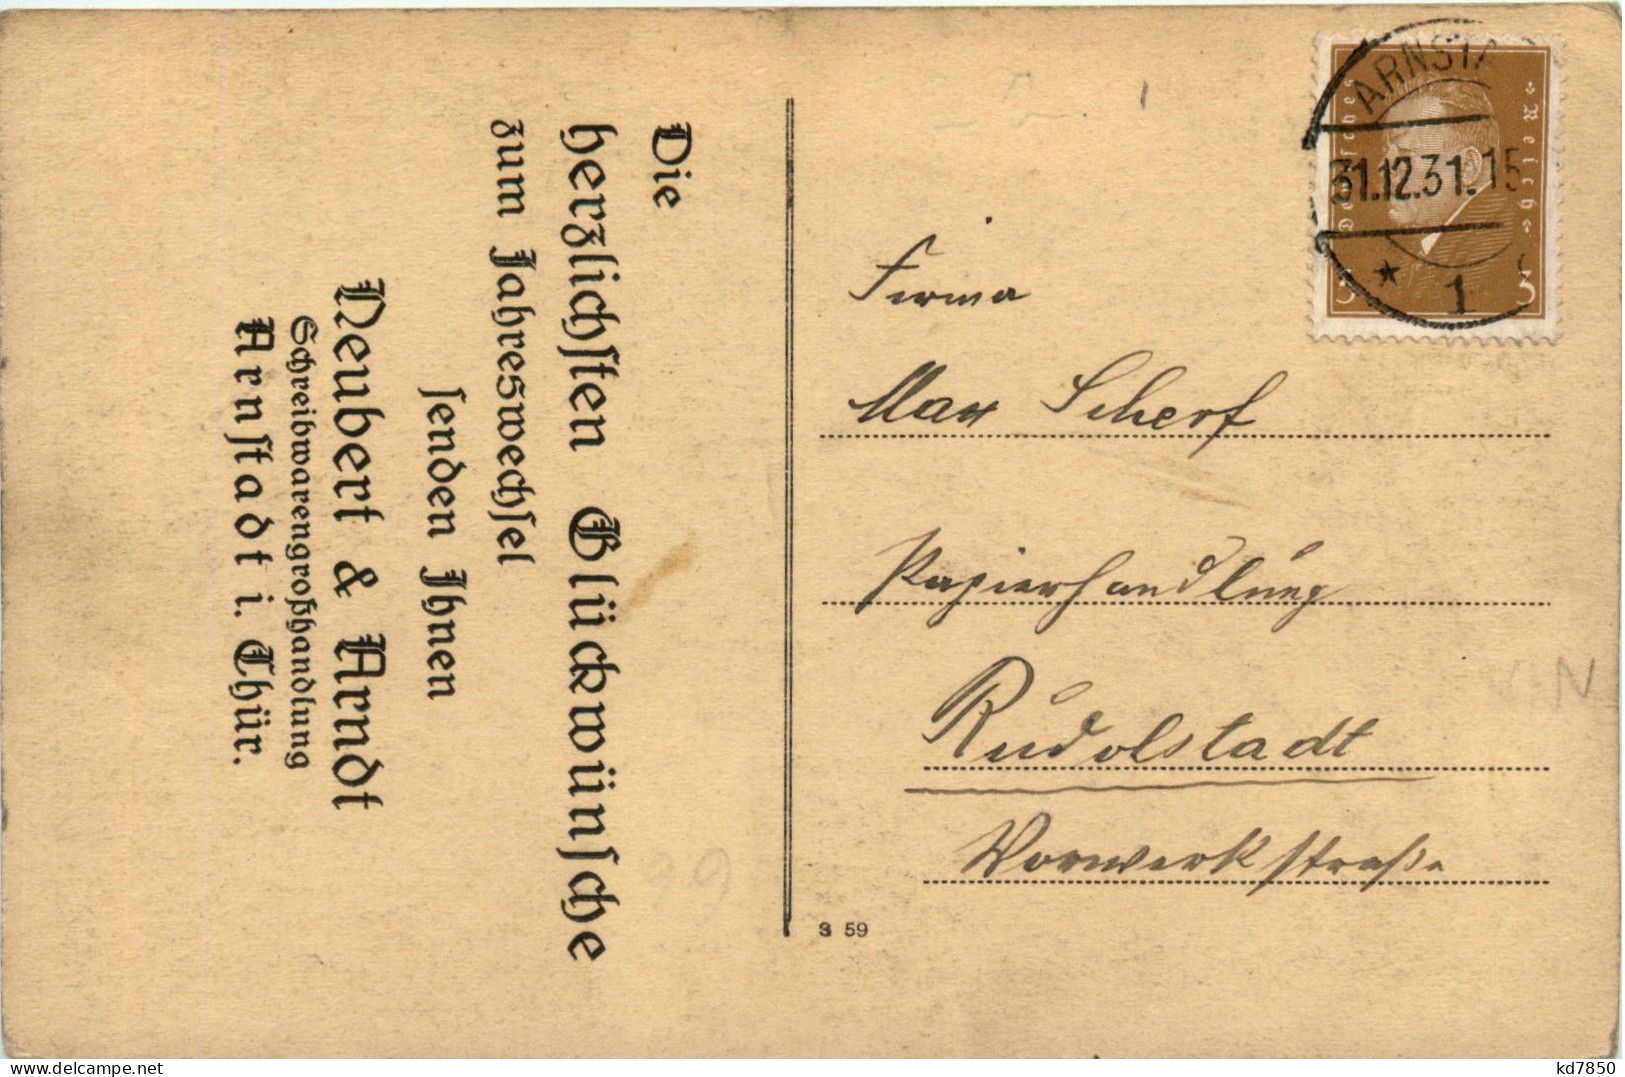 Die
herzlichsten Glückwünsche
zum Jahreswechsel
senden Ihnen
Neubert & Arndt
Schreibwarengroßhandlung
Arnstadt i. Thür.
Deutsches Reich
3 3
ARNSTA
31.12.31.15
* 1
Firma
Max Scherf
Papierhandlung
Rudolstadt
Vorwerkstraße
S 59
99
delcampe.net
kd7850